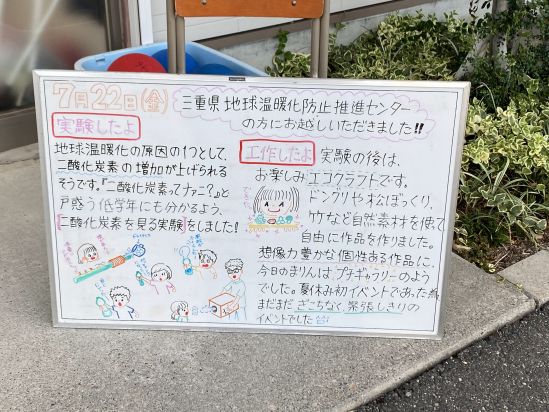 7月22日(金)
三重県 地球温暖化防止推進センター
の方にお越しいただきました!!
実験したよ
地球温暖化の原因の1つとして、
二酸化炭素の増加が上げられる
そうです。『二酸化炭素ってナァニ?』と
戸惑う低学年にも分かるよう、
二酸化炭素を見る実験をしました!
工作したよ 実験の後は、
お楽しみエコクラフトです。
ドングリや松ぼっくり、
竹など自然素材を使って
自由に作品を作りました。
想像力豊かな個性ある作品に、
今日のまりんはプチギャラリーのよう
でした。夏休み初イベントであった為
まだまだ ぎこちなく、緊張しきりの
イベントでした